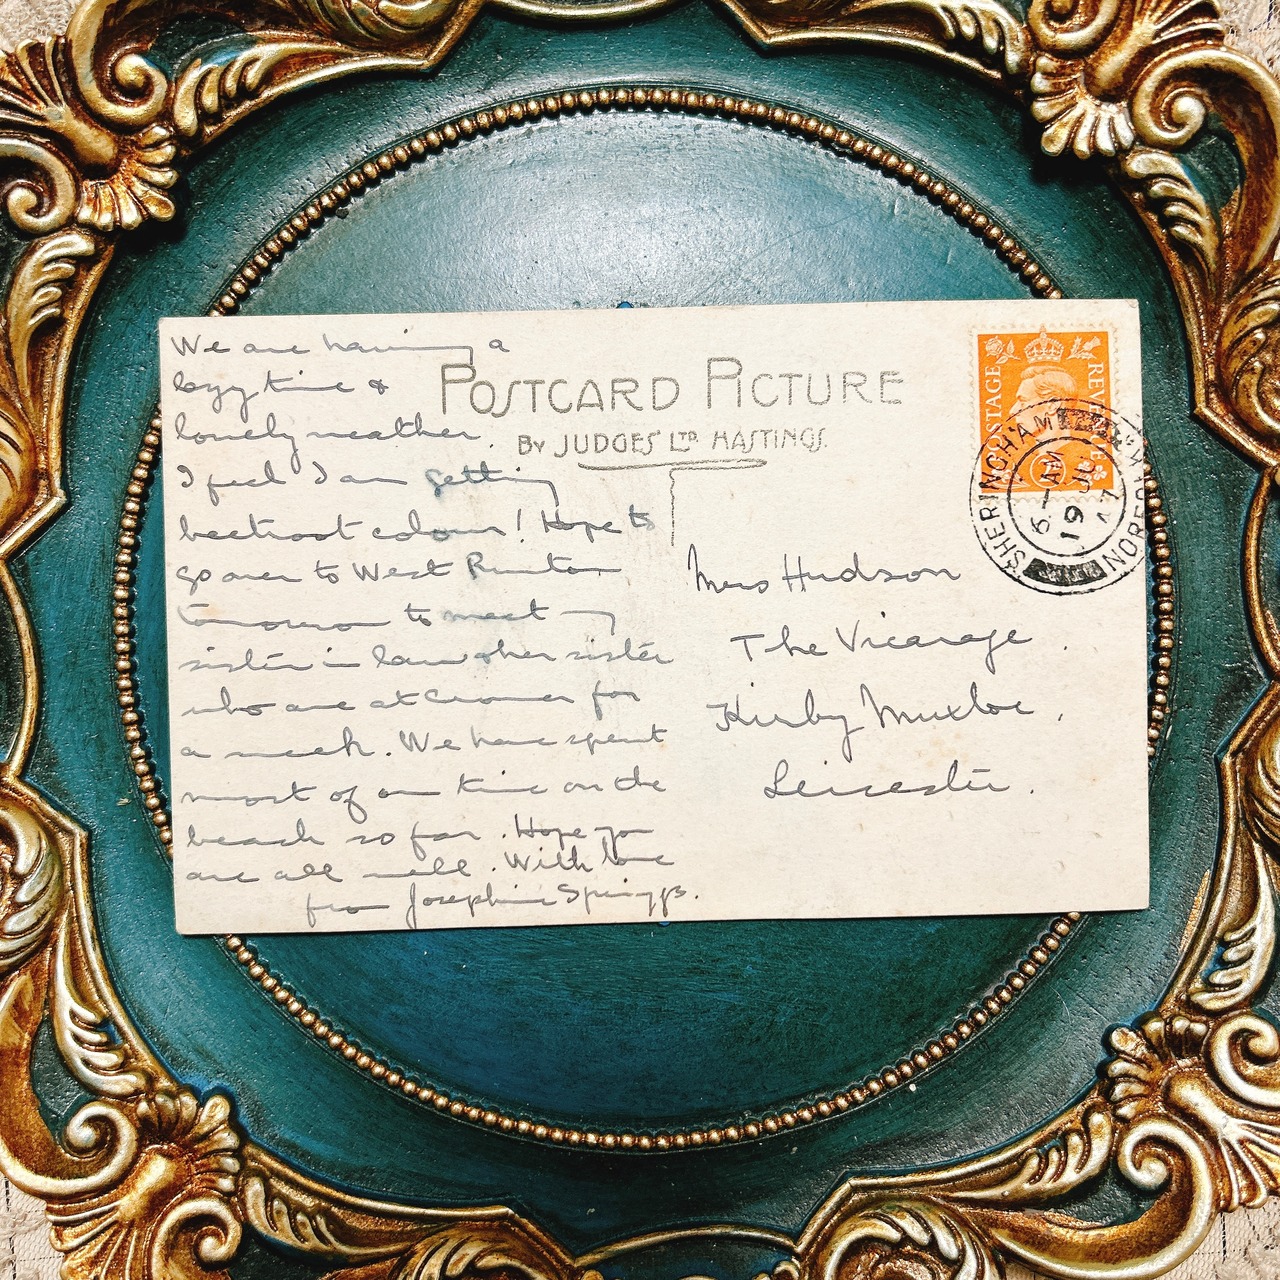 We are having a
lazy time &
lovely weather.
I feel I am getting
beetroot colour! Hope to
go over to West Runton
tomorrow to meet my
sister in law & her sister
who are at Cromer for
a week. We have spent
most of our time on the
beach so far. Hope you
are all well. With love
from Josephine Spriggs.
POSTCARD PICTURE
BY JUDGES LTD. HASTINGS.
POSTAGE REVENUE
SHERINGHAM
6-AM
19 JU
47
NORFOLK
Mrs Hudson
The Vicarage.
Kirby Muxloe,
Leicester.